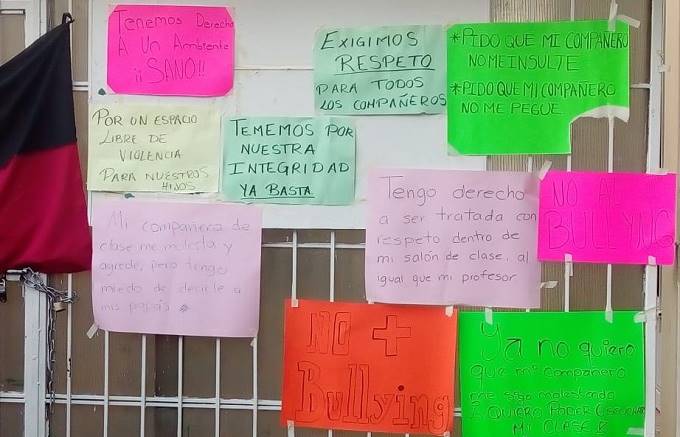 Tenemos Derecho
A Un Ambiente
¡¡SANO!!
EXIGIMOS
RESPETO
PARA TODOS
LOS COMPAÑEROS
*PIDO QUE MI COMPAÑERO
NO ME INSULTE
*PIDO QUE MI COMPAÑERO
NO ME PEGUE
POR UN ESPACIO
LIBRE DE
VIOLENCIA
PARA NUESTROS
HIJOS
TEMEMOS POR
NUESTRA
INTEGRIDAD
YA BASTA
Mi compañera de
clase me molesta y
agrede, pero tengo
miedo de decirle a
mis papás
Tengo derecho
a ser tratada con
respeto dentro de
mi salón de clase, al
igual que mi profesor
NO
BULLYING
NO +
Bullying
Ya no quiero
que mi compañero
me siga molestando
QUIERO PODER ESCUCHAR
MI CLASE